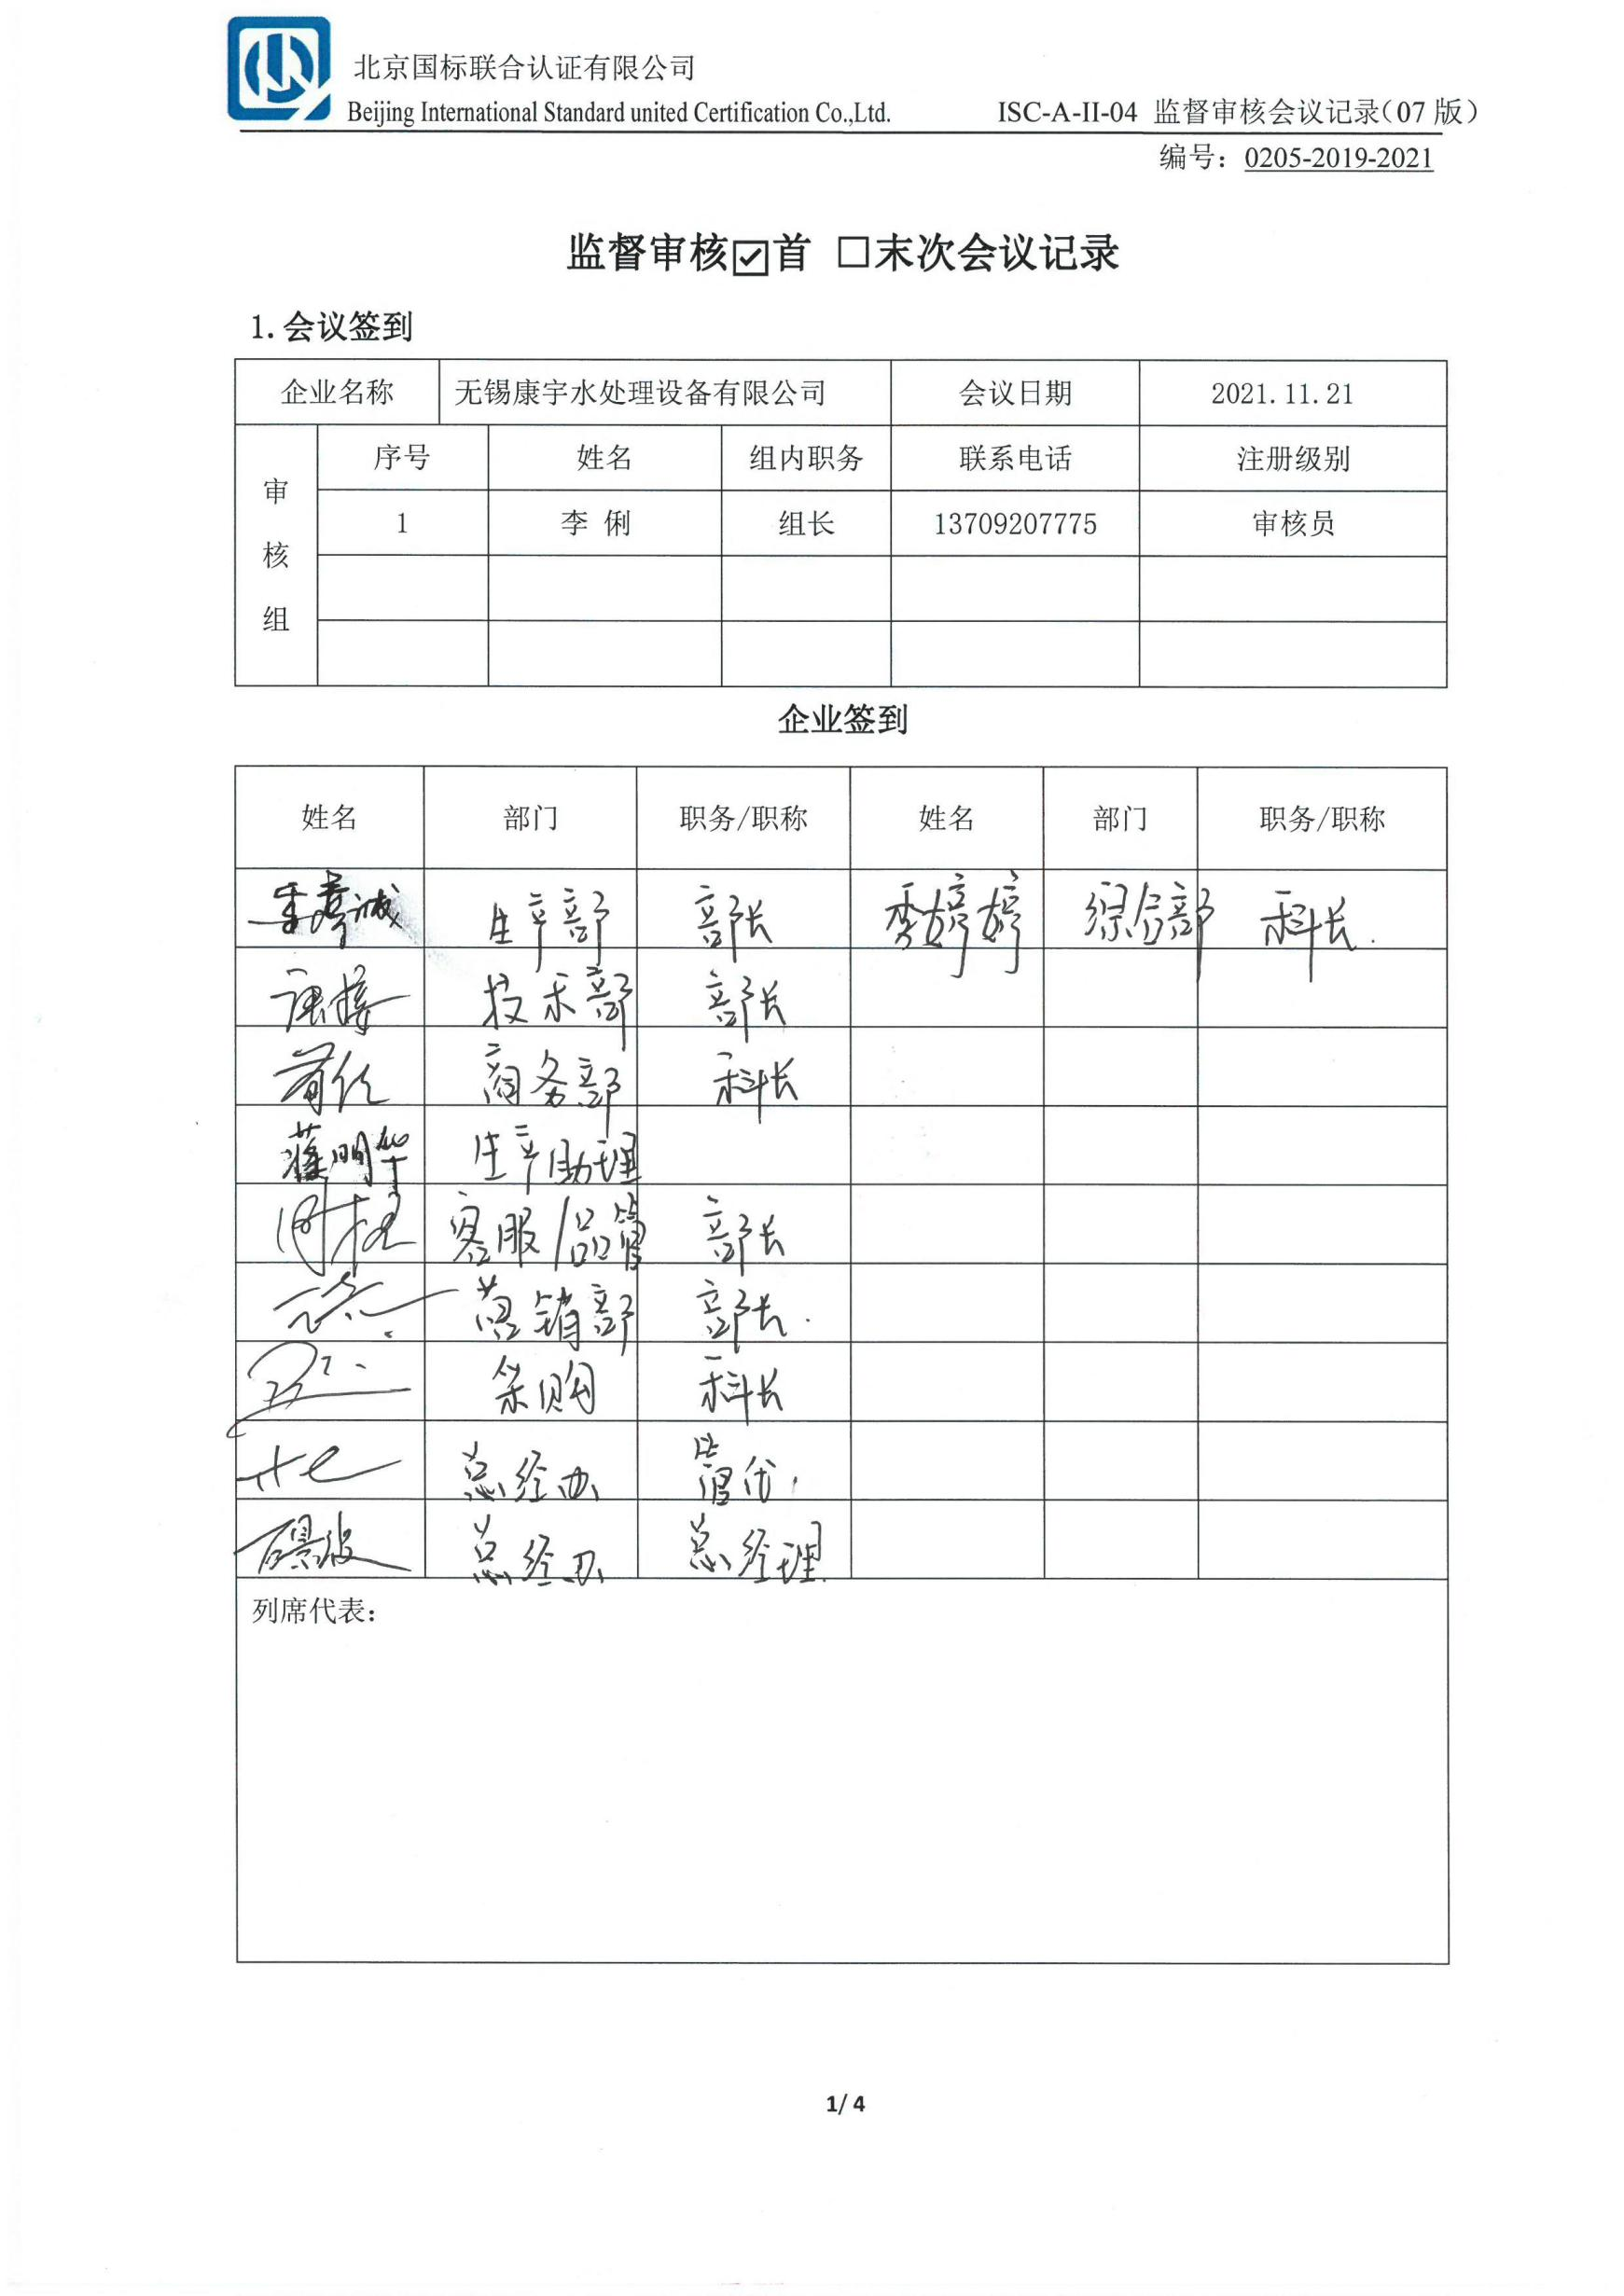 北京国标联合认证有限公司
Beijing International Standard united Certification Co.,Ltd. ISC-A-II-04 监督审核会议记录(07版)
编号：0205-2019-2021
监督审核☑首 □末次会议记录
1.会议签到
企业名称 无锡康宇水处理设备有限公司 会议日期 2021.11.21
审核组 序号 姓名 组内职务 联系电话 注册级别
1 李 俐 组长 13709207775 审核员
企业签到
姓名 部门 职务/职称 姓名 部门 职务/职称
生产部 部长 婷婷 综合部 科长
技术部 部长
商务部 科长
蒋明华 生产助理
客服/品管 部长
营销部 部长
采购 科长
总经办 管代
总经办 总经理
列席代表：
1/ 4